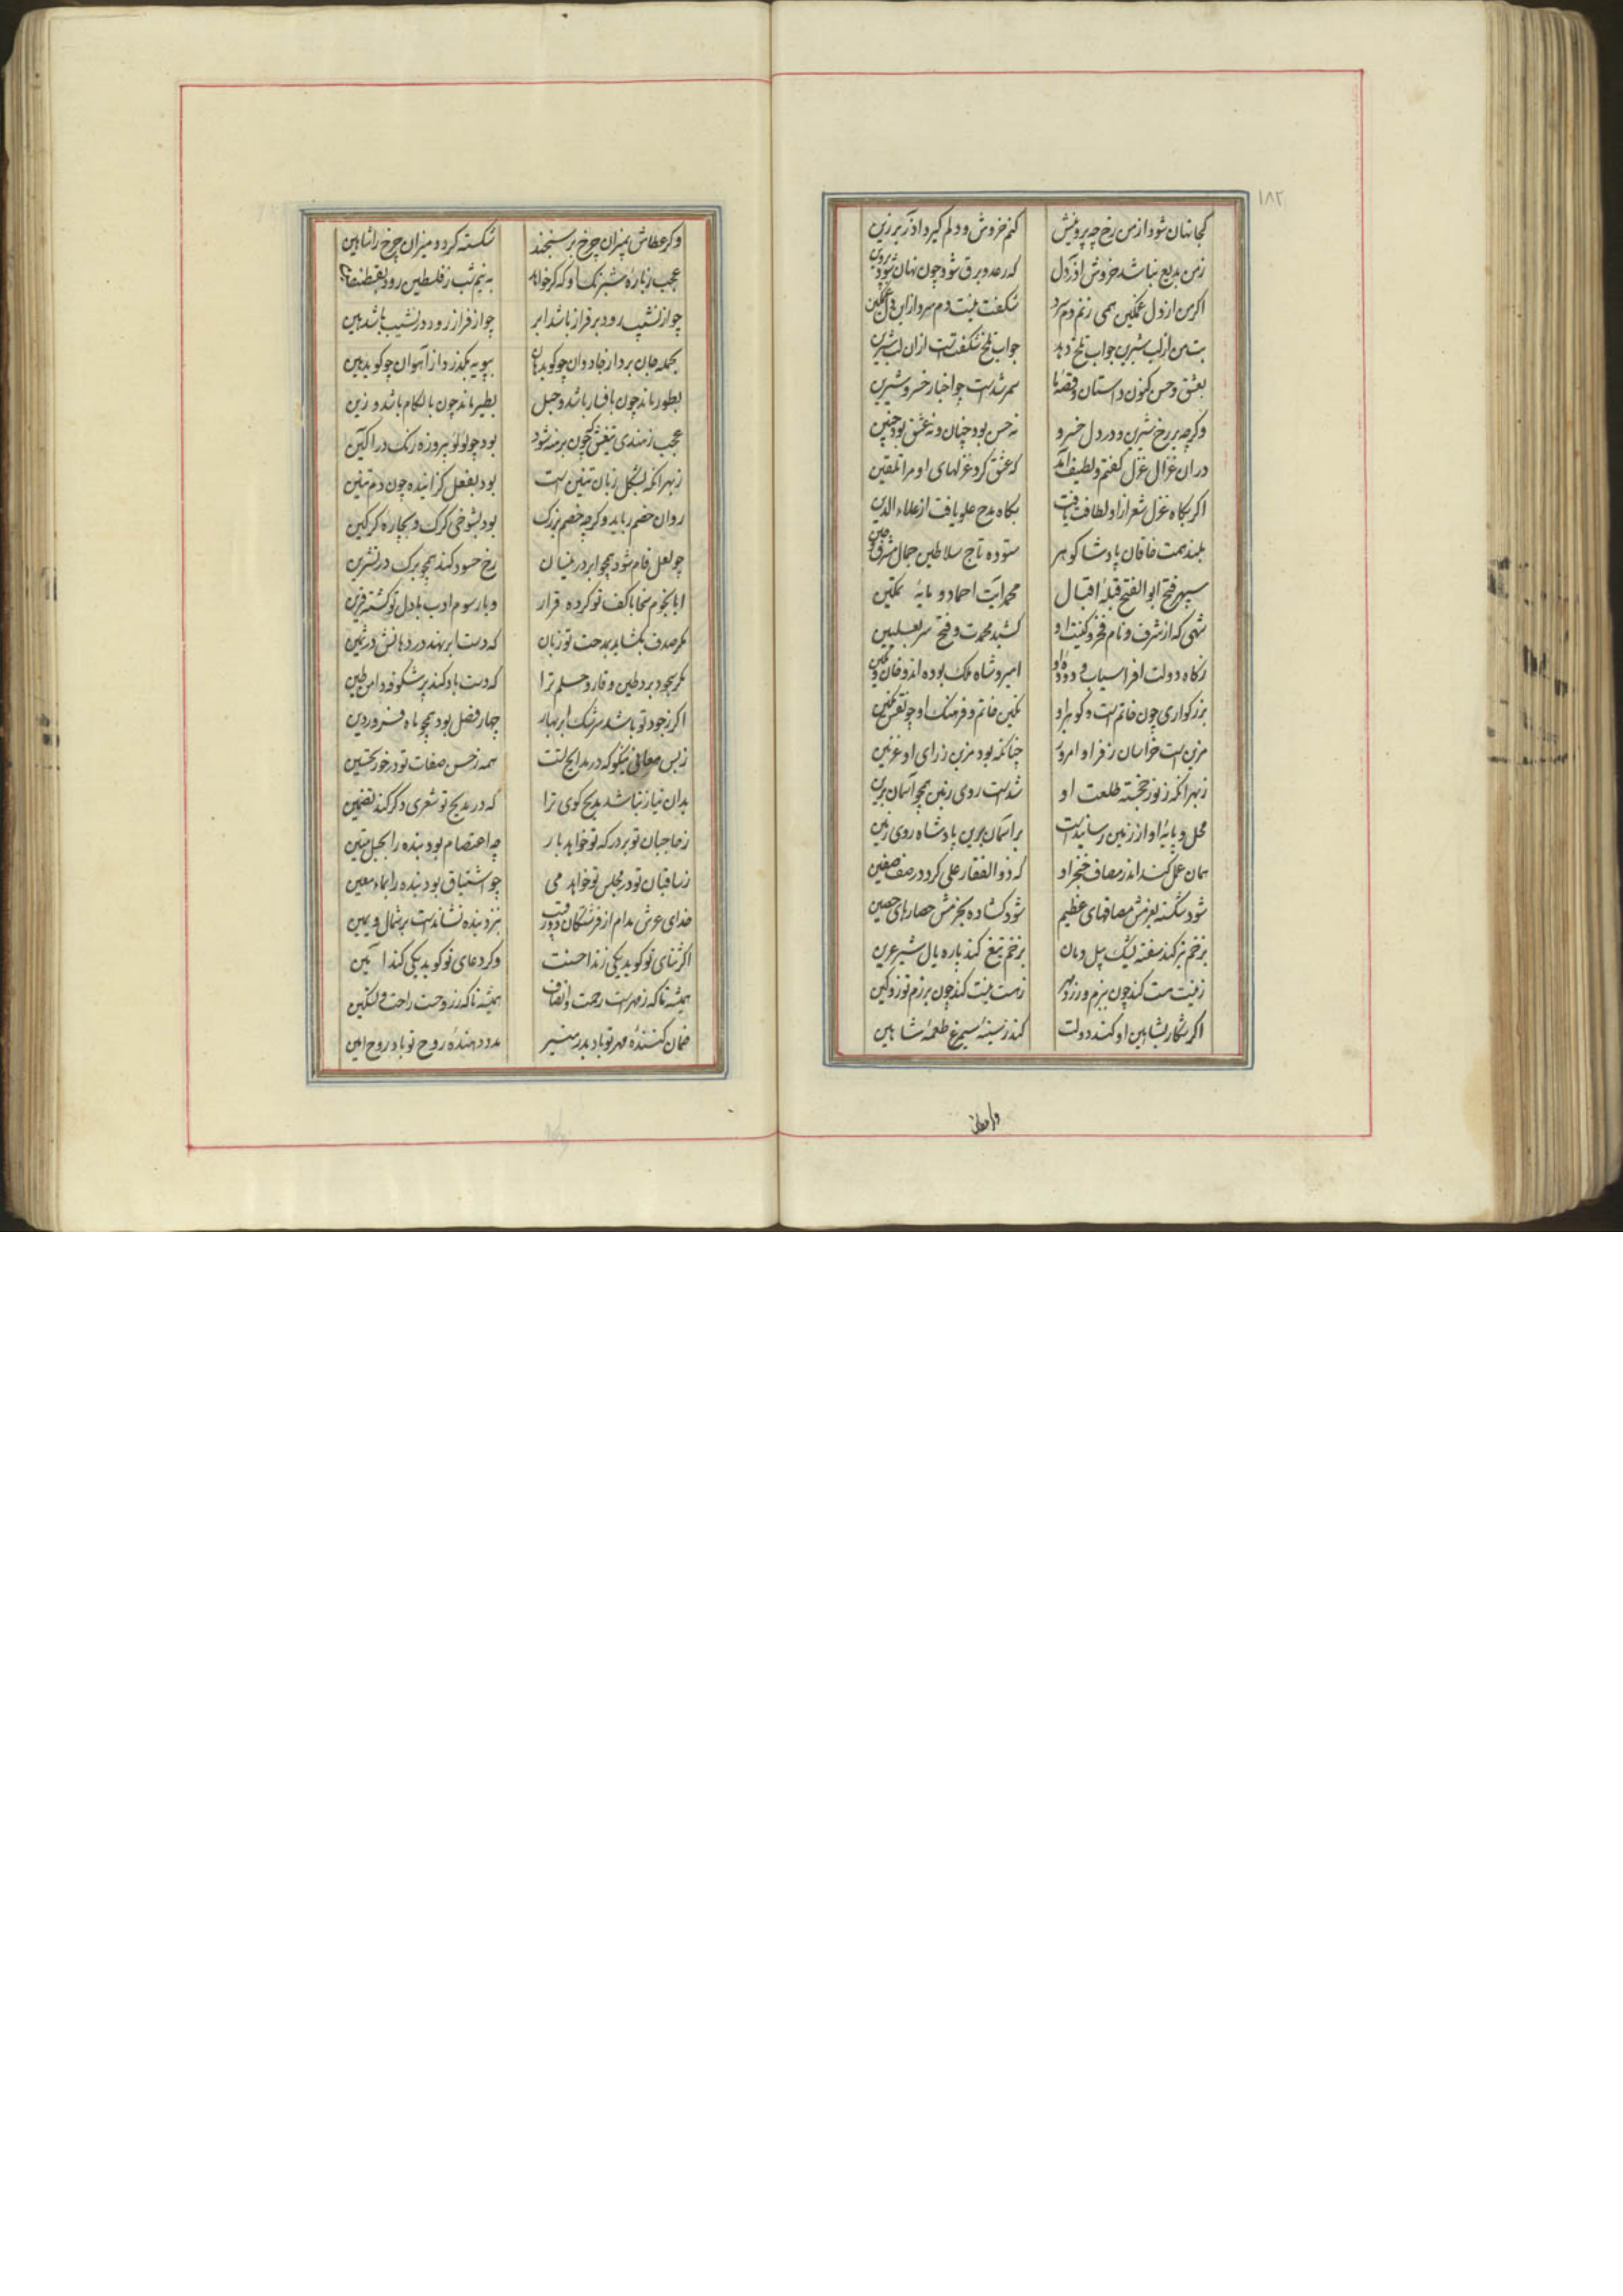 ۱۸۲
کجا نهان شود از من رخ چه پروینش کنم خروش و دلم گیرد آذر برزین
ز من بدیع نباشد خروش آذر دل که رعد و برق شود چون نهان شود پروین
اگر من از دل غمگین همی زنم دم سرد شگفت نیست دم سرد از این دل غمگین
بت من از لب شیرین جواب تلخ دهد جواب تلخ شگفتست از ان لب شیرین
بعشق و حسن کنون داستان و قصه ما سمر شدست چو اخبار خسرو و شیرین
و گرچه بر رخ شیرین و در دل خسرو نه حسن بود چنان و نه عشق بود چنین
در ان غزال غزل گفتم و لطیف آمد که عشق کرد غزلهای او مرا تلقین
اگر بگاه غزل شعر ازاو لطافت یافت بگاه مدح علو یافت از علاء الدین
بلند همت خاقان پادشا گوهر ستوده تاج سلاطین جمال مشرق و چین
سپهر فتح ابو الفتح قبله اقبال محمد آیت احمد و مایه تمکین
شهی که از شرف و نام فخر و کنیت او کشید محمدت و فتح سر بعلیین
ز گاه دولت افراسیاب و دوده او امیر و شاه و ملک بوده اند و خان و تکین
بزرگواری چون خاتم است و گوهر او نگین خاتم و فرهنگ او چو نقش نگین
مزین است خراسان ز فر او امروز چنانکه بود مزین ز رای او غزنین
ز بهر انکه ز نور خجسته طلعت او شدست روی زمین همچو آسمان برین
محل و پایه او از زمین رسانیدست بر اسمان برین پادشاه روی زمین
همان عمل کند اندر مصاف خنجر او که ذوالفقار علی کرد در صف صفین
شود شکسته بعزمش مصافهای عظیم شود گشاده بحزمش حصارهای حصین
بزخم تیر کند سفته لیک پیل دمان بزخم تیغ کند پاره یال شیر عرین
ز نیست هست کند چون ببزم ورزد مهر ز هست نیست کند چون برزم توزد کین
اگر شکار بشاهین او کند دولت کند ز سینه سیمرغ طعمه شاهین
وگر عطاش
وگر عطاش بمیزان چرخ برسنجند شکسته گردد میزان چرخ را شاهین
عجب ز باره شبرنگ او که گر خواهد به نیم شب ز فلسطین رود بقسطنطین
چو از نشیب رود بر فراز باشد ابر چو از فراز رود در نشیب باشد هین
بحمله جان برد از جادوان چو گوید هان بپویه بگذرد از آهوان چو گوید هین
بطور ماند چون با فسار باشد و جل بطیر ماند چون با لگام باشد و زین
عجب ز هندی تیغش که چون برهنه شود بود چو لولو پیروزه رنگ در آگین
ز بهر انکه بشکل زبان تنین است بود بفعل گزاینده چون دم تنین
روان خصم رباید وگرچه خصم بزرگ بود بشوخی گرگ و بچاره گرگین
چو لعل فام شود همچو ابر در نیسان رخ حسود کند همچو برگ در تشرین
ایا نجوم سخا با کف تو کرده قرار و یا رسوم ادب با دل تو گشته قرین
مگر صدف بگشاید بمدحت تو زبان که دست ابر نهد در دهانش در ثمین
مگر بجود برد طین وقار و حلم ترا که دست باد کند پر شکوفه دامن طین
اگر ز جود تو باشد سرشک ابر بهار چهار فصل بود همچو ماه فروردین
ز بس معانی نیکو که در مدایح تست همه ز حسن صفات تو در خور تحسین
بدان نیاز نباشد مدیح گوی ترا که در مدیح تو شعری دگر کند تضمین
ز حاجبان تو بر درگه تو خواهد بار چه اعتصام بود بنده را بحبل متین
ز ساقیان تو در مجلس تو خواهد می چو اشتیاق بود بنده را بماء معین
خدای عرش مدام از فرشتگان دو رقیب بنزد بنده نشاندست بر شمال و یمین
اگر ثنای تو گوید یکی زند احسنت وگر دعای تو گوید یکی کند آمین
همیشه تا که ز مهر است رحمت و انصاف همیشه تا که ز روحست راحت و تسکین
ضمان کننده مهر تو باد بدر منیر مدد دهنده روح تو باد روح امین